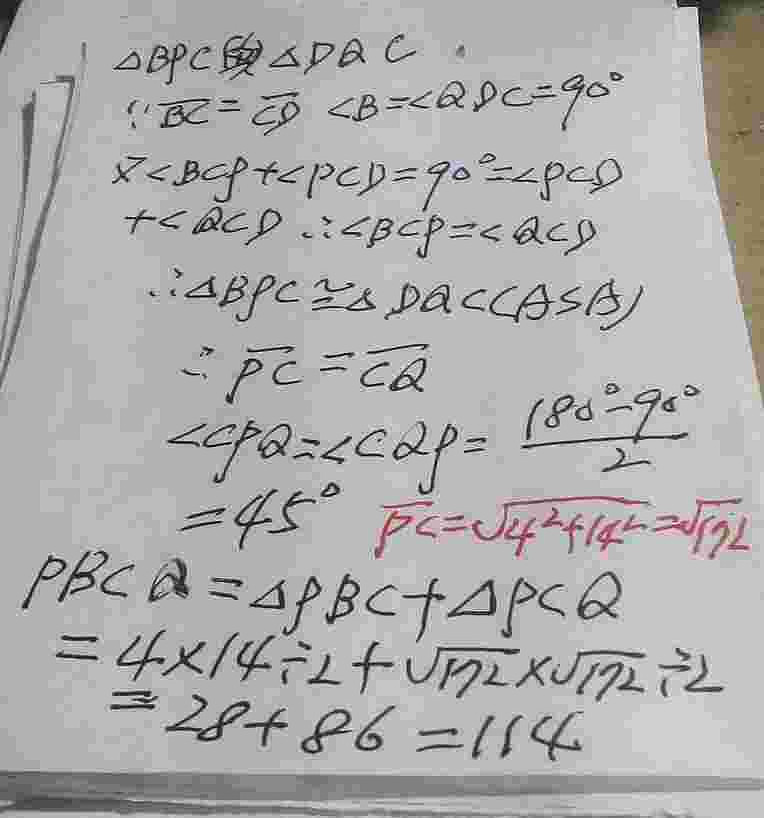 △BPC △DQC
∵ B̅C̅ = C̅D̅ <B=<QDC=90°
又<BCP+<PCD=90°=<PCD
+<QCD ∴<BCP=<QCD
∴△BPC≅△DQC(ASA)
∴ P̅C̅ = C̅Q̅
<CPQ=<CQP= (180°-90°)/2
=45° P̅C̅=√(4²+14²)=√172
PBCQ=△PBC+△PCQ
=4×14÷2+√172×√172÷2
=28+86=114